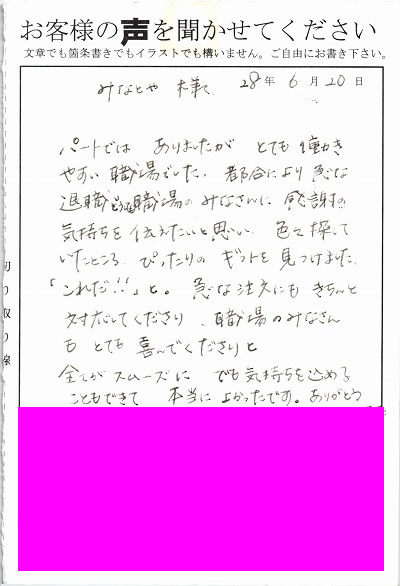 お客様の声を聞かせてください
文章でも箇条書きでもイラストでも構いません。ご自由にお書き下さい。
みなとや 様 28年 6月 20日
パートでは ありましたが とても 働き
やすい 職場でした。 都合により 急な
退職となり職場の みなさんに 感謝の
気持ちを 伝えたいと思い 色々 探して
いたところ ぴったりの ギフトを 見つけました
「これだ!!」と。 急な注文にも きちんと
対応してくださり、職場のみなさん
も とても 喜んでくださりと
全てが スムーズに でも気持ちを込める
こともできて 本当に よかったです。ありがとう
切り取り線